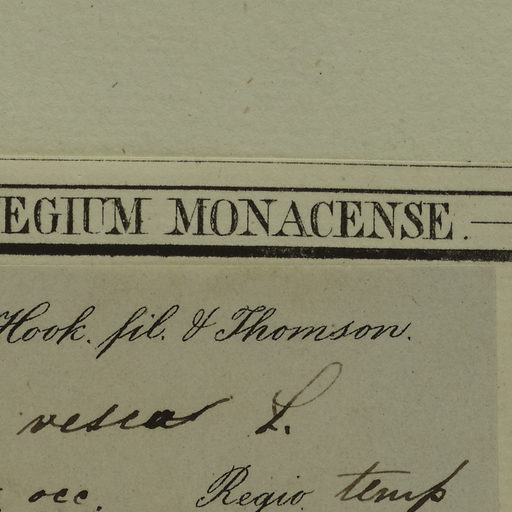 EGIUM MONACENSE.
Hook. fil. & Thomson.
vesca L.
occ. Regio temp